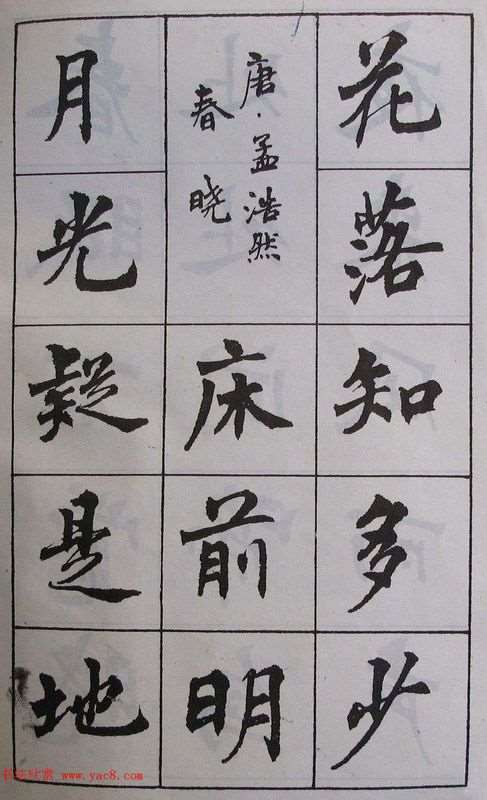 花落知多少
唐·孟浩然
春晓
床前明
月光疑是地
www.yac8.com